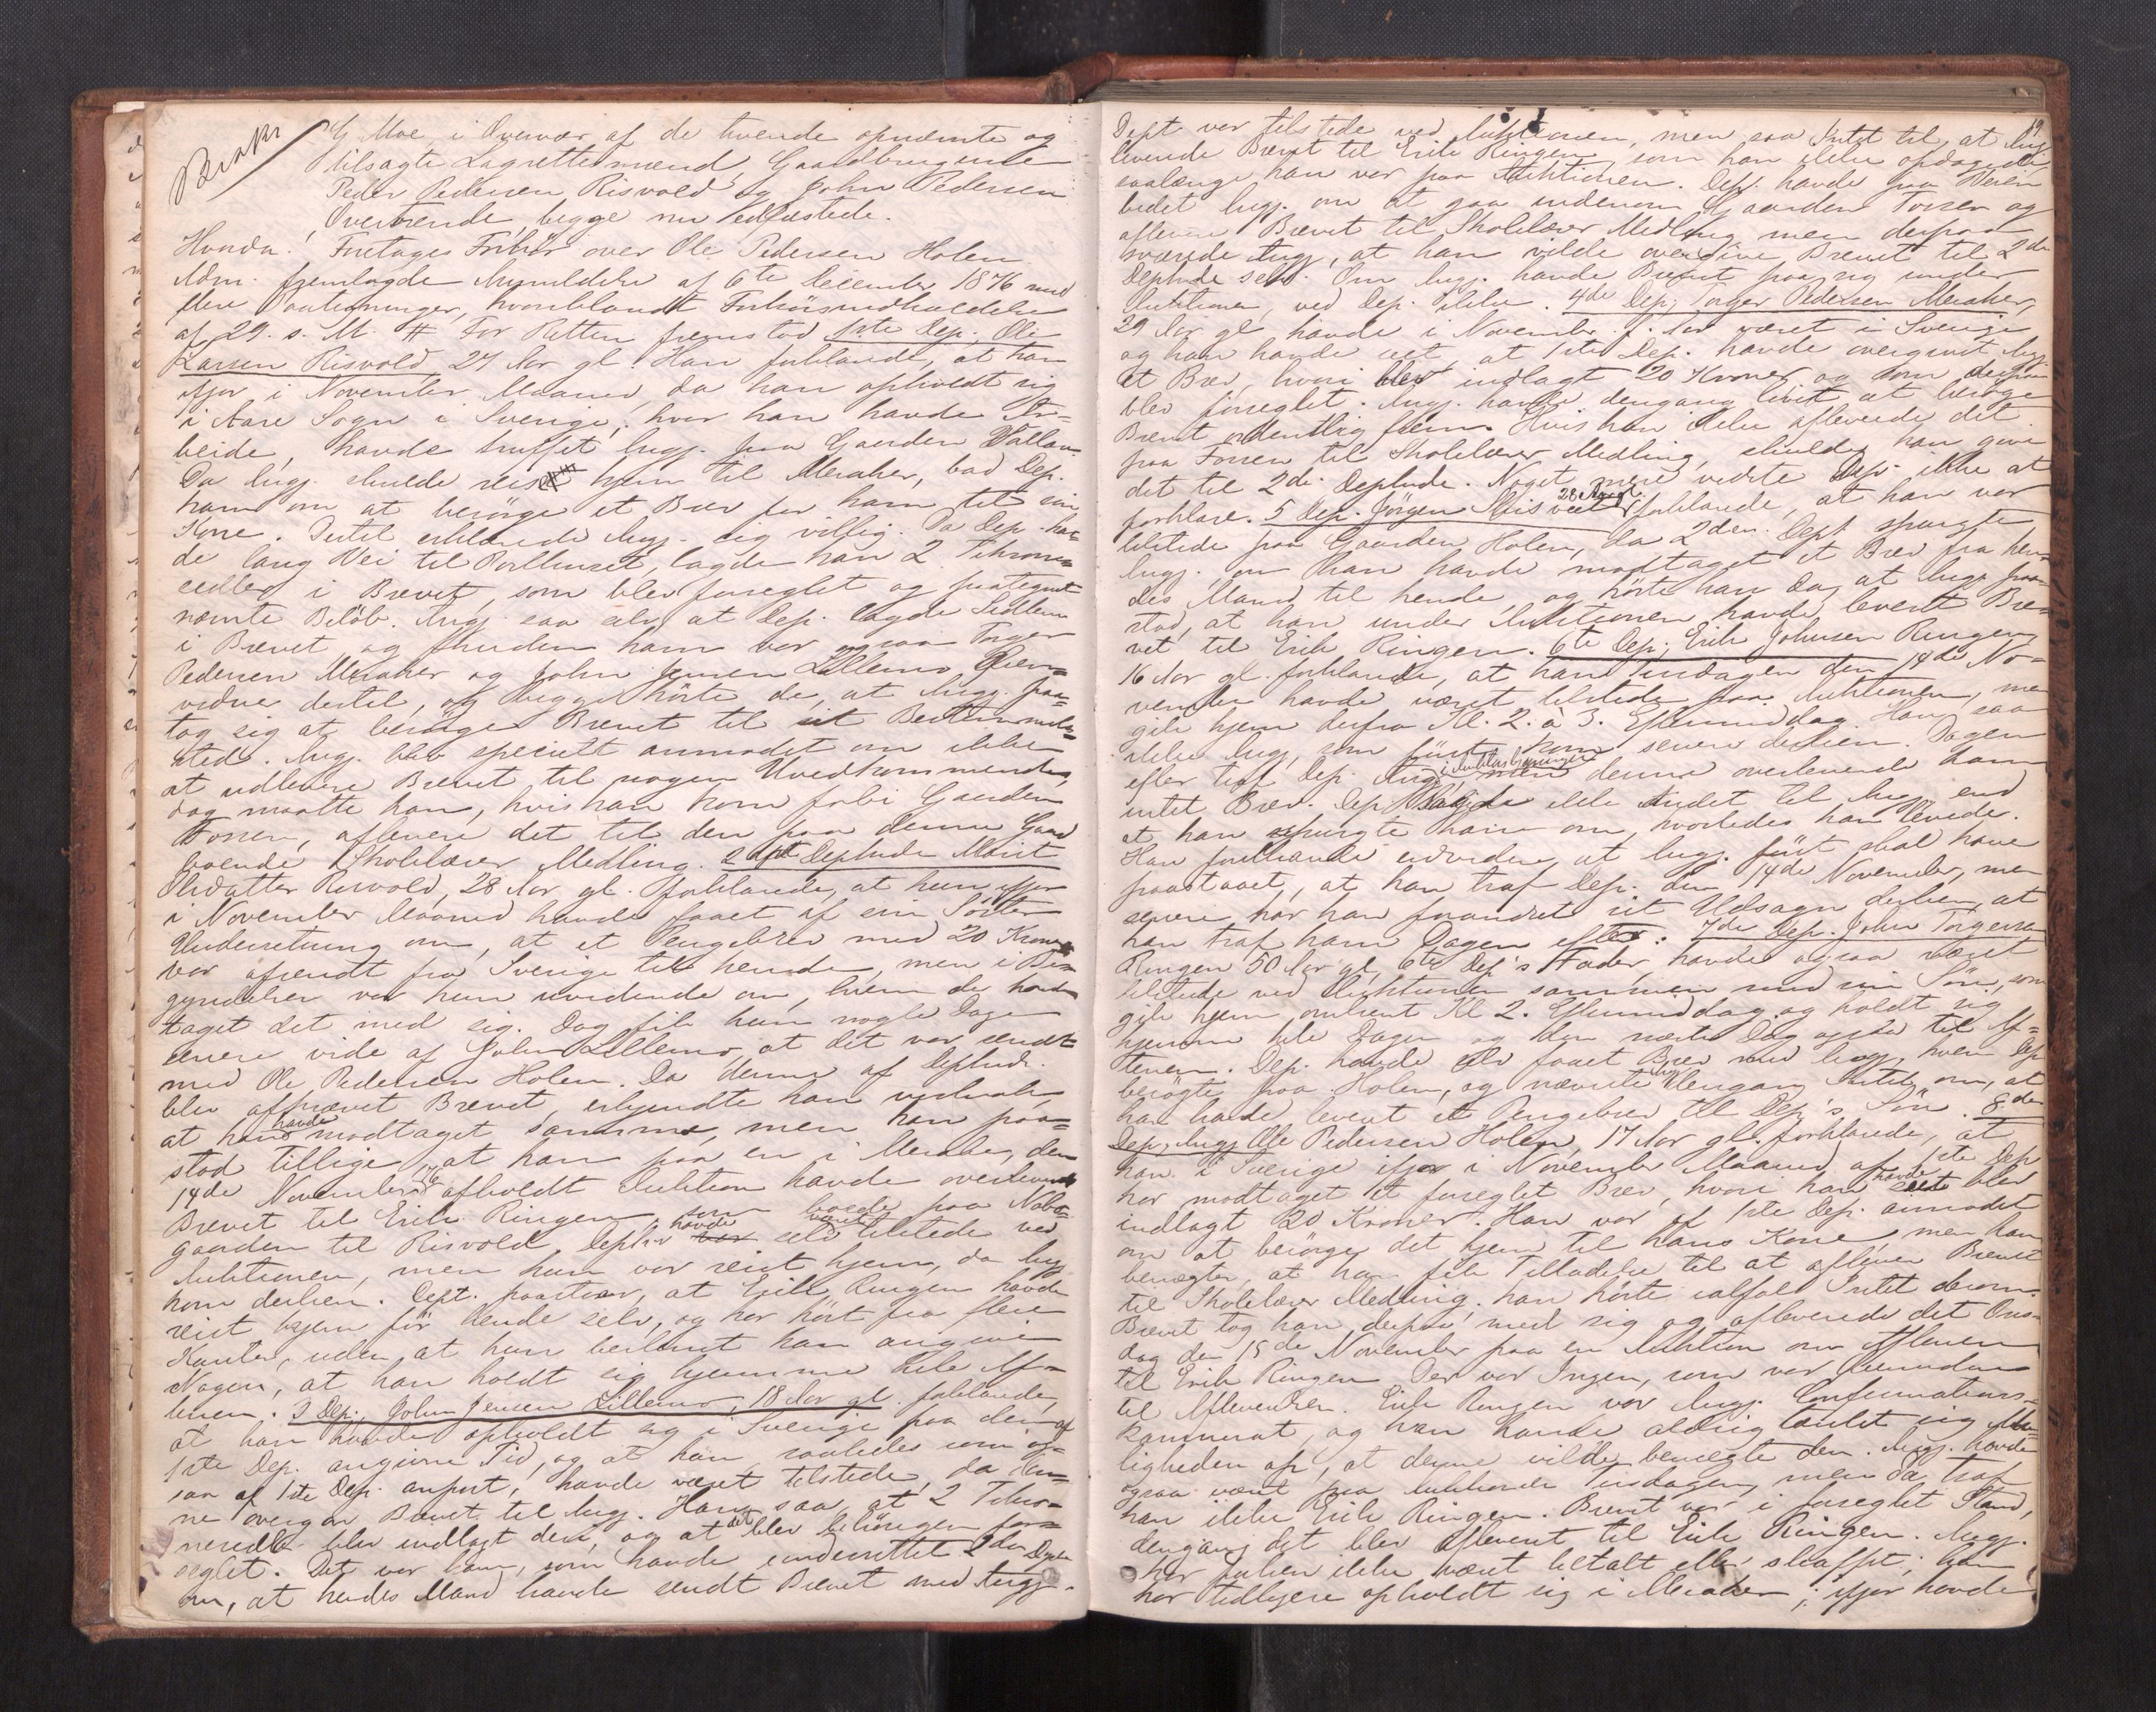 G Moe i Overvær af de tvende opnævnte og
tilsagte Lagrettesmænd, Gaardbrugerne
Peder Pedersen Risvold og John Pedersen
begge nu edfæstede.
Hvorda! Foretages Forhör over Ole Pedersen Holen.
Adm. fremlagde Anmeldelse af 6te December 1876 med
flere Paategninger, hvoriblandt Forhörsudholdelse
af 29. s. M. # For Retten fremstod 1ste Dep., Ole
Larsen Risvold 27 Aar gl. Han forklarede, at han
ifjor i November Maaned, da han opholdt sig
i Aare Sogn i Sverige, hvor han havde Ar-
beide, havde truffet Angj. paa Gaarden
Da Angj. skulde reise hjem til Meraker, bad Dep.
ham om at besörge et Brev for ham til sin
Kone. Dertil erklærede Angj. sig villig. Da Dep. hav-
de lang Vei til Posthuset, lagde han 2 Tikrone-
sedler i Brevet, som blev forseglet og paategnet
nævnte Belöb. Angj. saa selv at Dep. lagde Sedlerne
i Brevet, og foruden ham var ogsaa Torger
Pedersen Meraker og John Jensen Lillemo Öien-
vidne dertil, og begge hörte de, at Angj. paa-
tog sig at besörge Brevet til sit Bestemmelses-
sted. Angj. blev specielt anmodet om ikke
at udlevere Brevet til nogen Uvedkommende,
dog maatte han, hvis han kom forbi Gaarden
Fossen, aflevere det til den paa denne Gaard
boende Skolelærer Medling. 2det Deplnde Marit
Olsdatter Risvold, 28 Aar gl. forklarede, at hun ifjor
i November Maaned havde faaet af sin Söster
Underretning om, at et Pengebrev med 20 Kroner
var afsendt fra Sverige til hende, men i Be-
gyndelsen var hun uvidende om, hvem der havde
taget det med sig. Dog fik hun nogle Dage
senere vide af John Lillemo, at det var sendt
med Ole Pedersen Holen. Da denne af Deplnde.
blev afkrævet Brevet, erkjendte han vistnok
at han havde modtaget samme, men han paa-
stod tillige, at han paa en i Meraker, den
14de November 76 afholdt Auktion havde overleveret
Brevet til Erik Ringen, som boede paa Nabo-
gaarden til Risvold. Deplnd havde været selv tilstede ved
Auktionen, men hun var reist hjem, da Angj
kom derhen. Dept. paastaar, at Erik Ringen havde
reist hjem för hende selv, og har hört fra flere
Kanter, uden at hun bestemt kan angive
Nogen, at han holdt sig hjemme hele Af-
tenen. 3 Dep., John Jensen Lillemo, 18 Aar gl. forklarede,
at han havde opholdt sig i Sverige paa den af
1ste Dep. angivne Tid, og at han, saaledes som og-
saa af 1ste Dep. anfört, havde været tilstede, da den-
ne overgav Brevet til Angj. Han saa, at 2 Tikro-
nesedler blev indlagt deri, og at det blev behörigen for-
seglet. Det var ham, som havde underrettet 2den Deplnde
om, at hendes Mand havde sendt Brevet med Angj.
19.
Dept. var tilstede ved Auktionen, men saa Intet til, at Angj
leverede Brevet til Erik Ringen, som han ikke opdagede,
saalænge han var paa Auktionen. Dep. havde paa Veien
bedet Angj. om at gaa indenom Gaarden Fossen og
aflevere Brevet til Skolelærer Medling men derpaa
svarede Angj, at han vilde overgive Brevet til 2den
Deplnde selv. Om Angj. havde Brevet paa sig under
Auktionen, ved Dep. ikke. 4de Dep, Torger Pedersen Meraker,
29 Aar gl havde i November f. Aar været i Sverige
og han havde seet, at 1ste Dep. havde overgivet Angj.
et Brev, hvori blev indlagt 20 Kroner og som derpaa
blev forseglet. Angj. havde dengang lovet at besörge
Brevet ordentlig frem. Hvis han ikke afleverede det
paa Fossen til Skolelærer Medling, skulde han give
det til 2de Deplnde. Noget mere vidste Dep. ikke at
forklare. 5 Dep. Jörgen 28 Aar gl. forklarede, at han var
tilstede paa Gaarden Holen, da 2den Dept. spurgte
Angj. om han havde modtaget et Brev fra hen-
des Mand til hende og hörte han da, at Angj paa-
stod, at han under Auktionen havde leveret Bre-
vet til Erik Ringen. 6te Dep, Erik Johnsen Ringen
16 Aar gl. forklarede, at han Tirsdagen den 14de No-
vember havde været tilstede paa Auktionen, men
gik hjem derfra Kl. 2 a 3. Eftermiddag. Han saa
ikke Angj, som först kom senere derhen. Dagen
efter traf Dep. Angj men denne overleverede ham
intet Brev. Dep sagde ikke Andet til Angj end
at han spurgte ham om, hvorledes han levede.
Han forklarede endvidere, at Angj. först skal have
paastaaet, at han traf Dep. den 14de November, men
senere har han forandret sit Udsagn derhen, at
han traf ham Dagen efter. 7de Dep. John Torgersen
Ringen 50 Aar gl, 6te Dep's Fader, havde ogsaa været
tilstede ved Auktionen sammen med sin Sön, som
gik hjem omtrent Kl 2. Eftermiddag og holdt sig
hjemme hele Dagen og den næste Dag ogsaa til Af-
tenen. Dep. havde selv faaet Brev med Angj, hvem Dep
besögte paa Holen, og nævnte Angj dengang Intet om, at
han havde leveret et Pengebrev til Dep's Sön. 8de
Dep, Angj Ole Pedersen Holen, 17 Aar gl. forklarede, at
han i Sverige ifjor i November Maaned af 1ste Dep
har modtaget et forseglet Brev, hvori han havde seet blev
indlagt 20 Kroner. Han var af 1ste Dep. anmodet
om at besörge det hjem til hans Kone, men han
benægter, at han fik Tilladelse til at aflevere Brevet
til Skolelærer Medling. han hörte ialfald Intet derom.
Brevet tog han derpaa med sig og afleverede det Ons-
dag den 15de November paa en Auktion om Aftenen
til Erik Ringen. Der var Ingen, som var
til Afleverelsen. Erik Ringen var Angj. Confirmations-
kammerat, og han havde aldrig tænkt sig Mu-
ligheden af, at denne vilde benægte den. Angj. havde
ogsaa været paa Auktionen Tirsdagen, men da traf
han ikke Erik Ringen. Brevet var i forseglet Stand,
dengang det blev afleveret til Erik Ringen. Angj.
har forhen ikke været tiltalt eller straffet; han
har tidligere opholdt sig i Meraker; ifjor havde